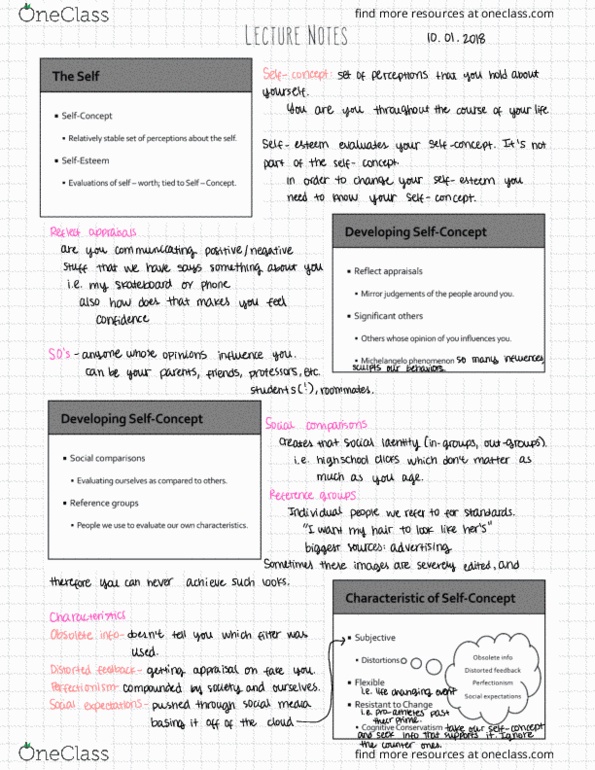 OneClass
find more resources at oneclass.com
LECTURE NOTES
10.01.2018
The Self
Self-Concept
Relatively stable set of perceptions about the self.
Self-Esteem
Evaluations of self – worth; tied to Self – Concept.
Self-concept: set of perceptions that you hold about
yourself.
You are you throughout the course of your life
Self-esteem evaluates your self-concept. It's not
part of the self-concept.
in order to change your self-esteem you
need to know your self-concept.
Reflect appraisals
are you communicating positive/negative
stuff that we have says something about you
i.e. my skateboard or phone
also how does that makes you feel
confidence
SO's - anyone whose opinions influence you.
can be your parents, friends, professors, etc.
students(!), roommates.
Developing Self-Concept
Reflect appraisals
Mirror judgements of the people around you.
Significant others
Others whose opinion of you influences you.
Michelangelo phenomenon so many influences
sculpts our behaviors.
Developing Self-Concept
Social comparisons
Evaluating ourselves as compared to others.
Reference groups
People we use to evaluate our own characteristics.
Social comparisons
creates that social identity (in-groups, out-groups).
i.e. highschool clics which don't matter as
much as you age.
Reference groups
Individual people we refer to for standards.
"I want my hair to look like her's"
biggest sources: advertising
Sometimes these images are severely edited, and
therefore you can never achieve such looks.
Characteristics
Obsolete info- doesn't tell you which filter was
used.
Distorted feedback- getting appraisal on fake you.
Perfectionism- compounded by society and ourselves.
Social expectations- pushed through social media
basing it off of the cloud
Characteristic of Self-Concept
Subjective
Distortions
Obsolete info
Distorted feedback
Perfectionism
Social expectations
Flexible
i.e. life changing event
Resistant to Change
i.e. pro-athletes past
their prime.
Cognitive Conservatism take our self-concept
and seek info that supports it. Ignore
the counter ones.
OneClass
find more resources at oneclass.com